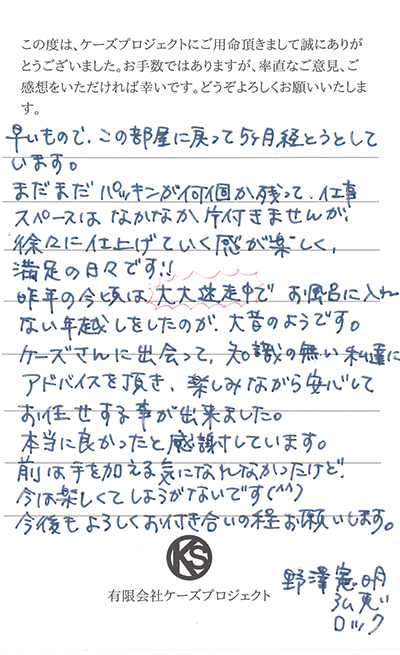 この度は、ケーズプロジェクトにご用命頂きまして誠にありが
とうございました。お手数ではありますが、率直なご意見、ご
感想をいただければ幸いです。どうぞよろしくお願いいたしま
す。
早いもので、この部屋に戻って5ヶ月経とうとして
います。
まだまだパッキンが何個か残って、仕事
スペースはなかなか片付きませんが、
徐々に仕上げていく感が楽しく、
満足の日々です!!
昨年の今頃は大大迷走中でお風呂に入れ
ない年越しをしたのが、大昔のようです。
ケーズさんに出会って、知識の無い私達に
アドバイスを頂き、楽しみながら安心して
お任せする事が出来ました。
本当に良かったと感謝しています。
前は手を加える気になれなかったけど、
今は楽しくてしようがないです(^^)
今後もよろしくお付き合いの程お願いします。
KS
有限会社ケーズプロジェクト
野澤憲明
弘恵
ロック